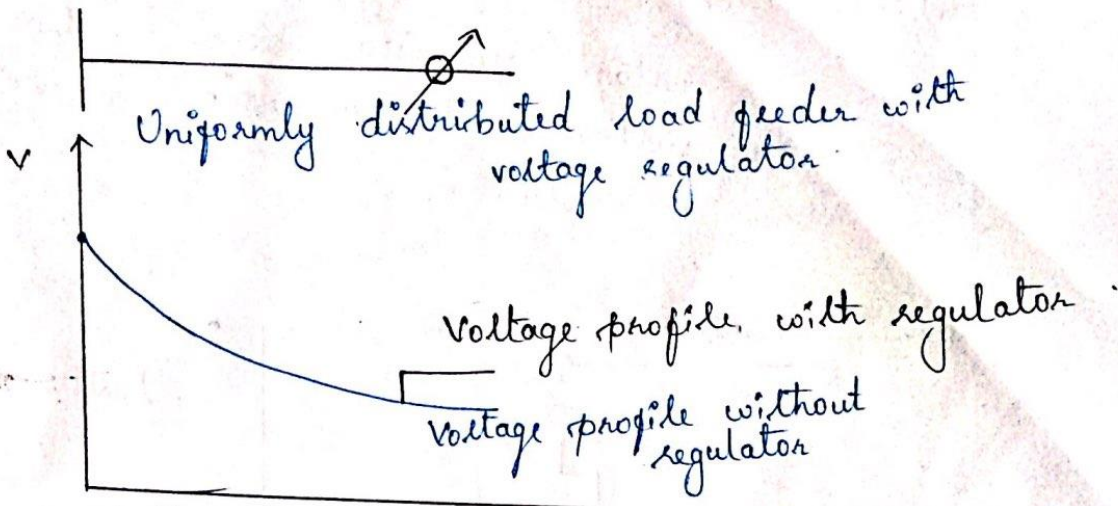 Uniformly distributed load feeder with
voltage regulator
V
Voltage profile, with regulator
Voltage profile without
regulator